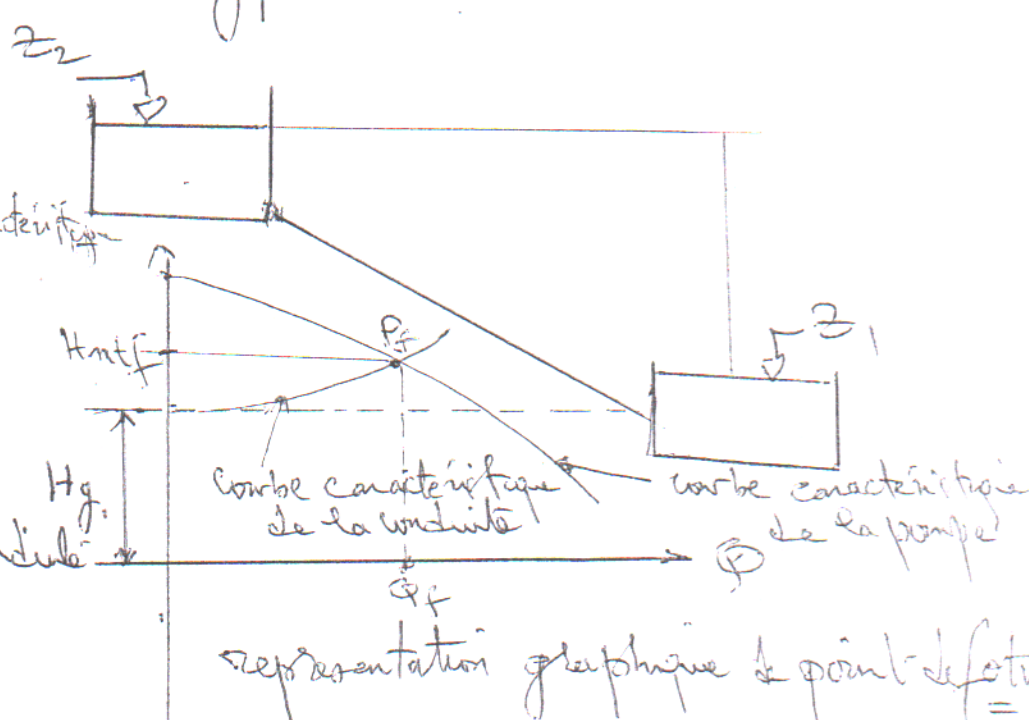 Z2
Z1
Pf
Hmtf
Hg
courbe caractéristique
de la conduite
courbe caractéristique
de la pompe
Q
Qf
représentation graphique de point de